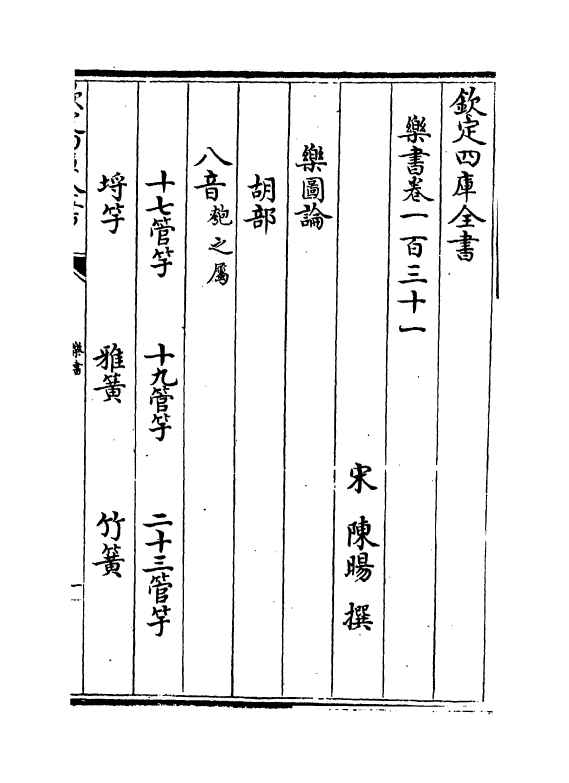 欽定四庫全書
樂書卷一百三十一
宋 陳暘 撰
樂圖論
胡部
八音匏之屬
十七管竽 十九管竽 二十三管竽
埙竽 雅簧 竹簧
樂書
一